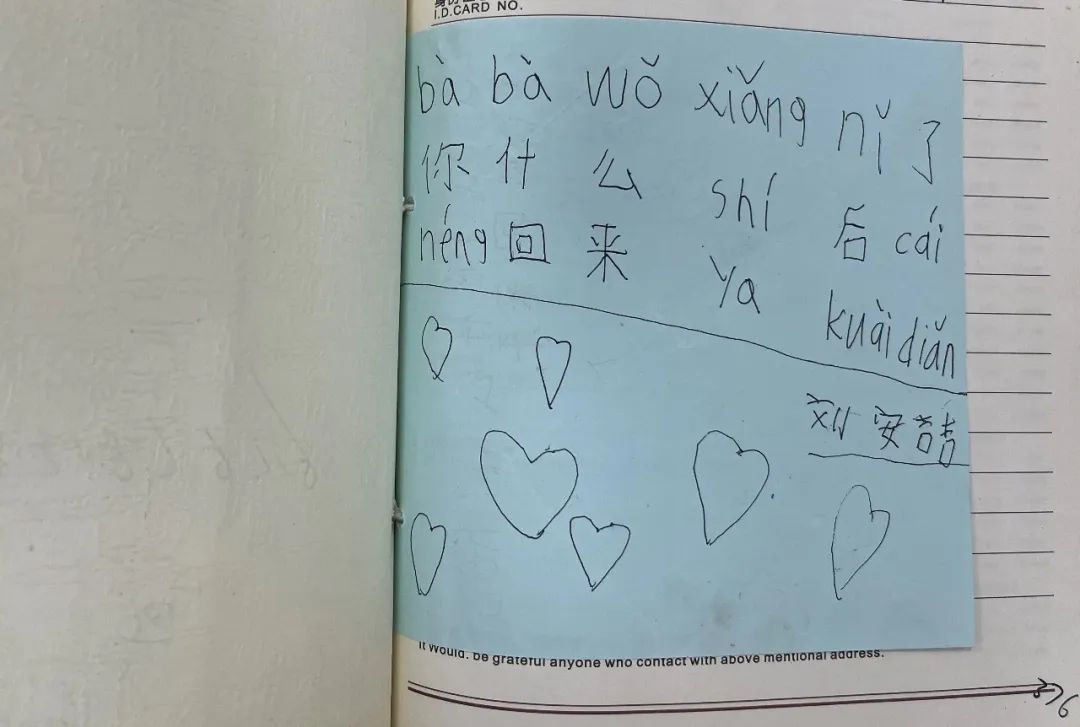 I.D.CARD NO.
bà bà wǒ xiǎng nǐ 了
你 什 么 shí 后 cái
néng 回 来 ya kuài diǎn
刘 安
It would. be grateful anyone who contact with above mentional address.